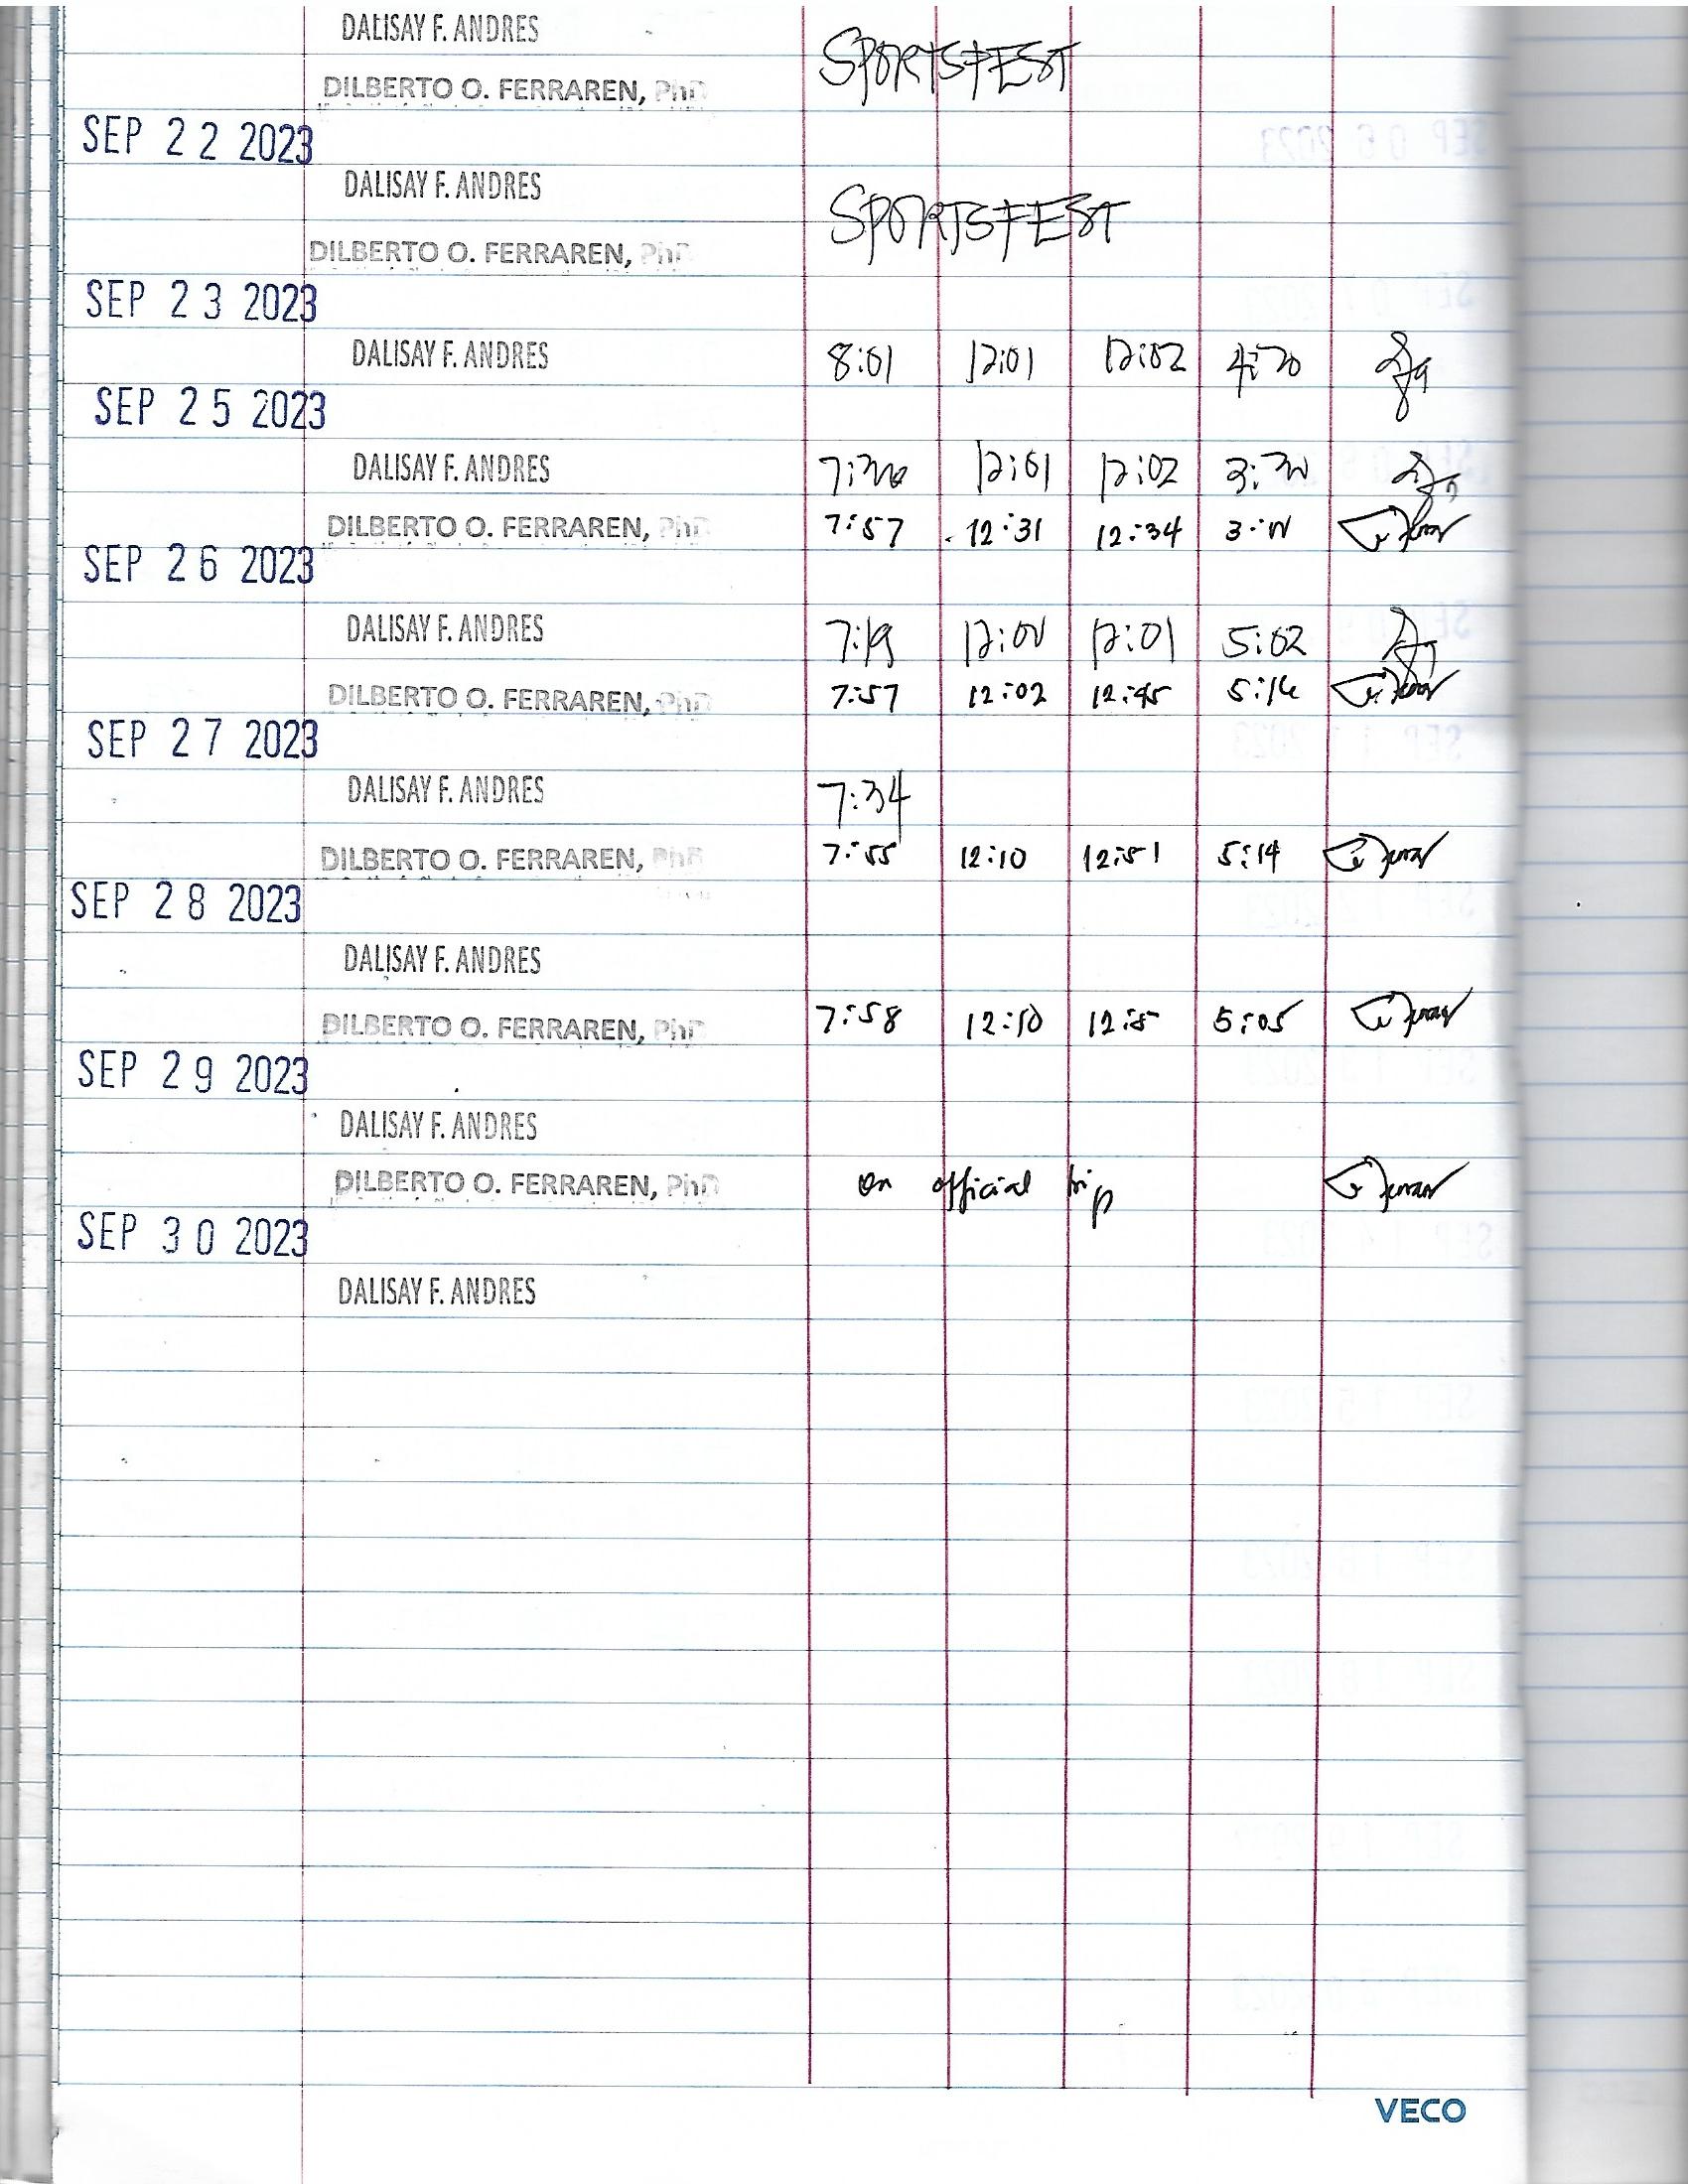 DALISAY F. ANDRES
SPORTSFEST
DILBERTO O. FERRAREN, PhD
SEP 22 2023
DALISAY F. ANDRES
SPORTSFEST
DILBERTO O. FERRAREN, PhD
SEP 23 2023
DALISAY F. ANDRES 8:01 12:01 12:02 4:30
SEP 25 2023
DALISAY F. ANDRES 12:01 12:02 3:30
DILBERTO O. FERRAREN, PhD 7:57 12:31 12:34
SEP 26 2023
DALISAY F. ANDRES 7:19 12:00 12:01 5:02
DILBERTO O. FERRAREN, PhD 7:57 12:02 12:45 5:16
SEP 27 2023
DALISAY F. ANDRES 7:34
DILBERTO O. FERRAREN, PhD 7:55 12:10 12:51 5:14
SEP 28 2023
DALISAY F. ANDRES
DILBERTO O. FERRAREN, PhD 7:58 12:50 5:05
SEP 29 2023
DALISAY F. ANDRES
DILBERTO O. FERRAREN, PhD on official trip
SEP 30 2023
DALISAY F. ANDRES
VECO